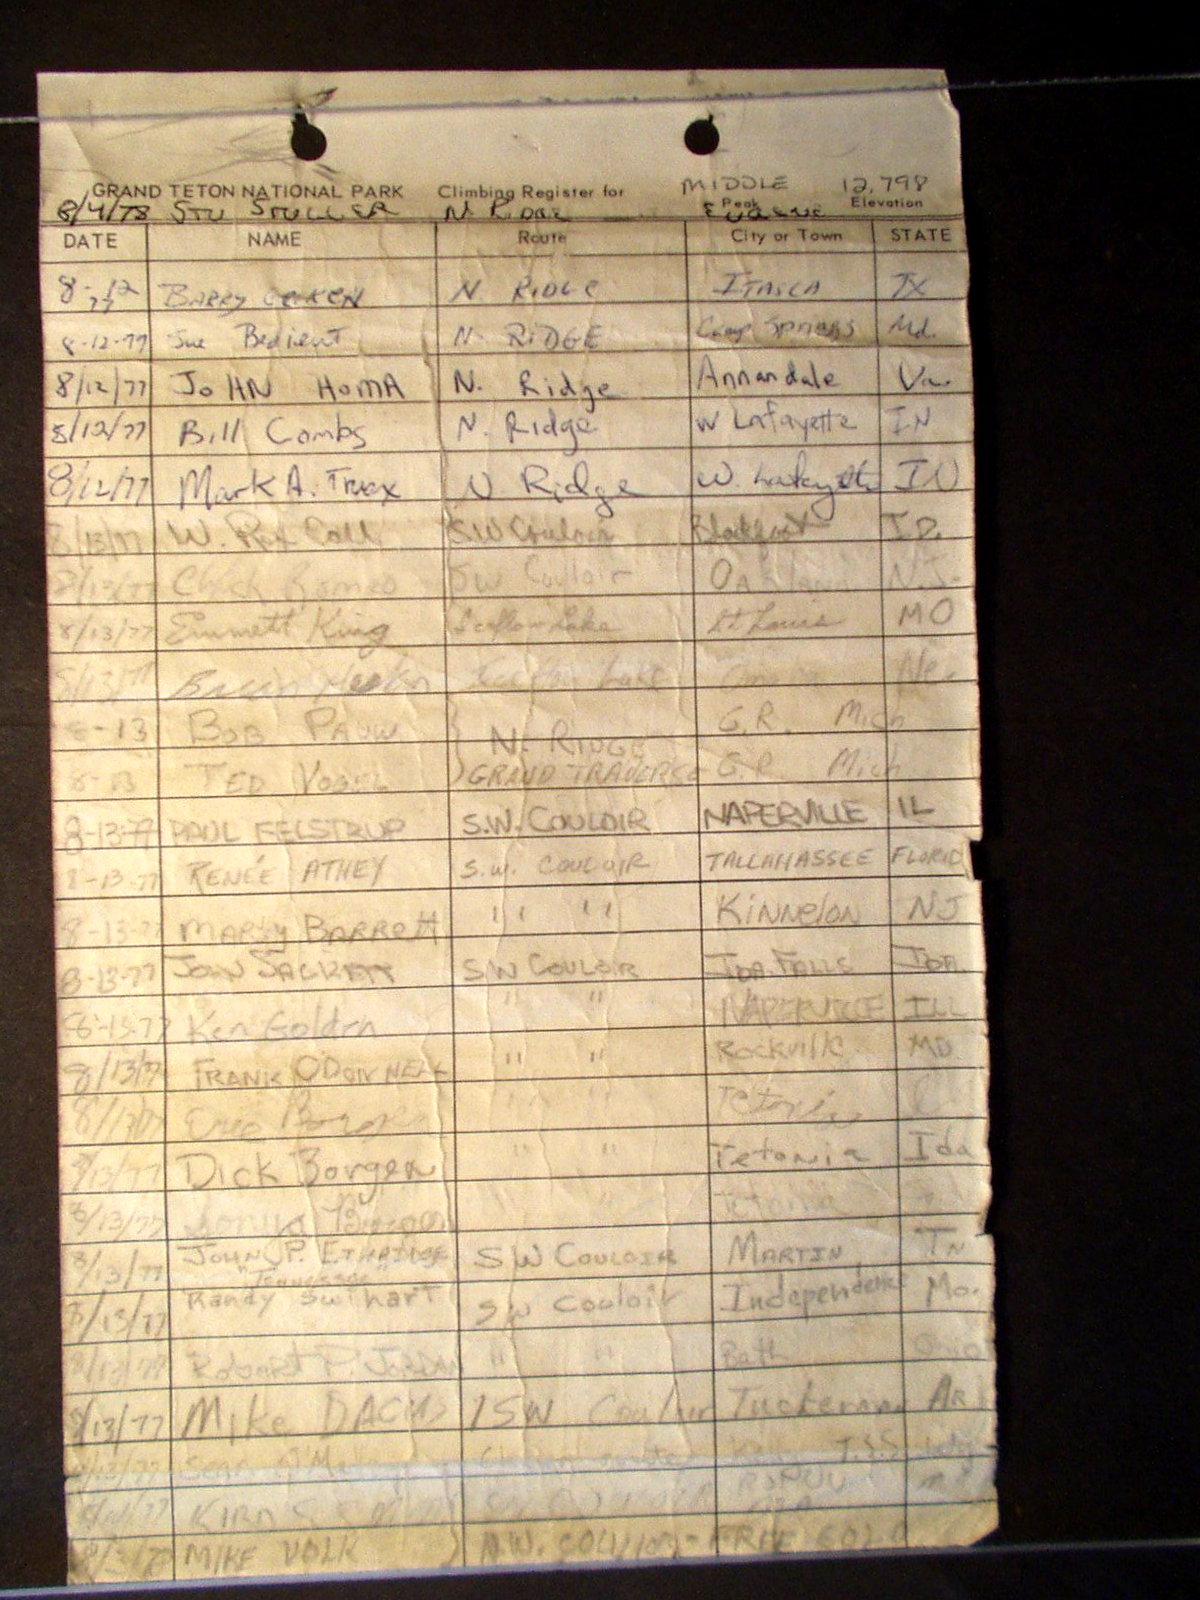 GRAND TETON NATIONAL PARK Climbing Register for MIDDLE Peak 12,798 Elevation
8/4/78 STU STULLER N RIDGE EUGENE
DATE NAME Route City or Town STATE
8-12-77 BARRY N RIDGE ITASCA TX
8-12-77 Sue Bedient N. RIDGE Camp Springs Md.
8/12/77 JOHN HOMA N. Ridge Annandale Va.
8/12/77 Bill Combs N. Ridge W Lafayette IN
8/12/77 Mark A. Truex N Ridge W. Lafayette IN
8/13/77 W. Rex Call SW Couloir Blackfoot ID.
8/13/77 Chuck Romeo SW Couloir N.J.
8/13/77 Emmett King Lake St Louis MO
8/13/77 Lake Omaha Ne.
8-13 BOB PAUW N. RIDGE G.R. Mich
8-13 TED VOGEL GRAND TRAVERSE G.R. Mich
8-13-77 PAUL FELSTRUP S.W. COULOIR NAPERVILLE IL
8-13-77 RENÉE ATHEY S.W. COULOIR TALLAHASSEE FLORID
8-13-77 MARTY BARRETT " " Kinnelon NJ
8-13-77 JOHN SACKETT SW COULOIR IDA. FALLS IDA.
8-13-77 Ken Goldrn " " NAPERVILLE ILL
8/13/77 FRANK ODONNELL " " ROCKVILLE MD
8/13/77 " " Tetonia
8/13/77 Dick Borgen " " Tetonia Ida
8/13/77 Sonya Borgen " Tetonia
8/13/77 JOHN P. ETHRIDGE SW COULOIR MARTIN TN
"Tennessee"
8/13/77 Randy Swihart SW Couloir Independence Mo.
8/13/77 Robert P. Jordan " " Bath Ohio
8/13/77 Mike DACUS SW Couloir Tuckerman AR
8/13/77 Sean
KIRN
MIKE VOLK N.W. COULOIR - FREE SOLO